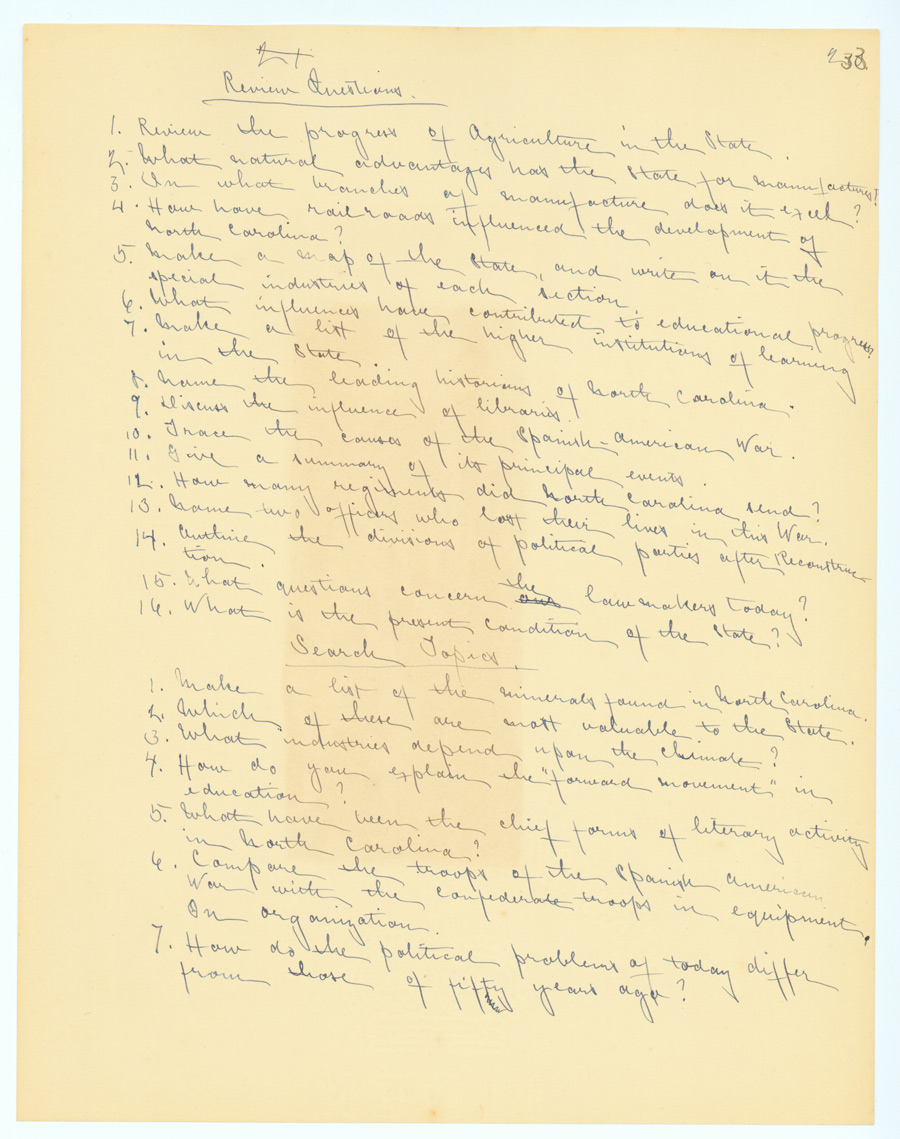 233.
Review Questions.
1. Review the progress of Agriculture in the State.
2. What natural advantages has the State for manufactures?
3. In what branches of manufacture does it excel?
4. How have railroads influenced the development of
North Carolina?
5. Make a map of the State, and write on it the
special industries of each section
6. What influences have contributed to educational progress?
7. Make a list of the higher institutions of learning
in the State.
8. Name the leading historians of North Carolina.
9. Discuss the influence of libraries.
10. Trace the causes of the Spanish-American War.
11. Give a summary of its principal events.
12. How many regiments did North Carolina send?
13. Name two officers who lost their lives in this War.
14. Outline the divisions of political parties after Reconstruc-
tion.
15. What questions concern the our lawmakers today?
16. What is the present condition of the State?
Search Topics.
1. Make a list of the minerals found in North Carolina.
2. Which of these are most valuable to the State.
3. What industries depend upon the climate?
4. How do you explain the "forward movement" in
education?
5. What have been the chief forms of literary activity
in North Carolina?
6. Compare the troops of the Spanish American
War with the Confederate troops in equipment.
In organization.
7. How do the political problems of today differ
from those of fifty years ago?